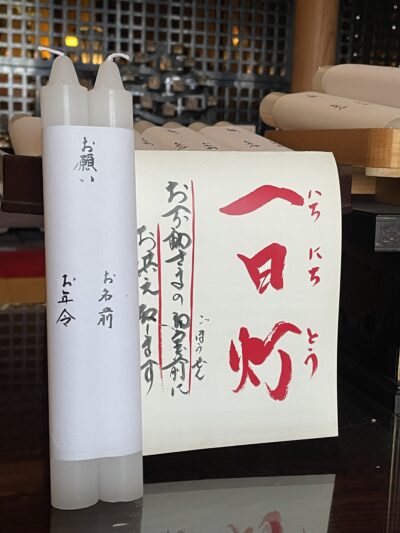 いちにちとう
一日灯
ごほうぜん
お不動さまの御宝前に
お供え致します
お願い
お名前
お年令